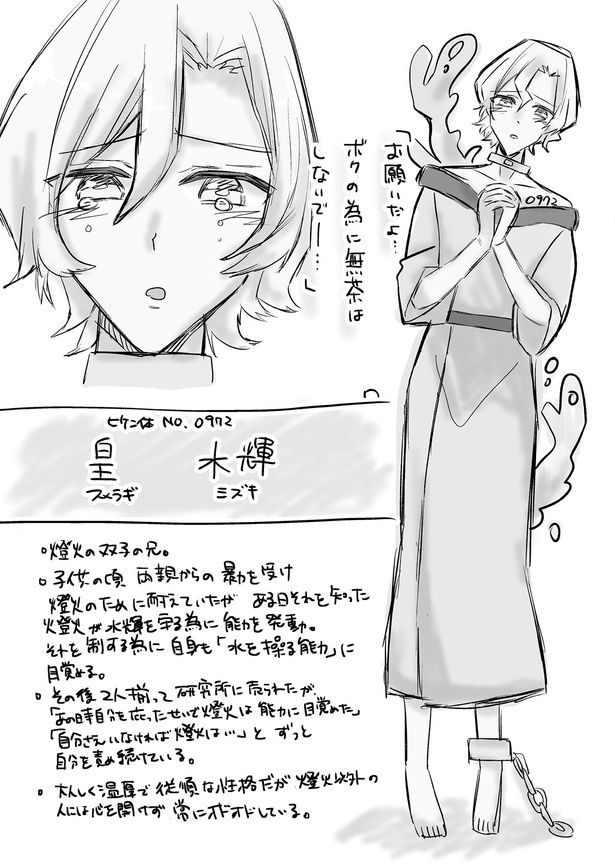 「お願いだよ…
ボクの為に無茶は
しないで──…」
0972
ヒケン体 NO. 0972
皇 水輝
スメラギ ミズキ
。燈火の双子の兄。
。子供の頃 両親からの暴力を受け
燈火のために耐えていたが ある日それを知った
燈火が水輝を守る為に能力を発動。
それを制する為に自身も「水を操る能力」に
目覚める。
。その後2人揃って研究所に売られたが
「あの時自分を庇ったせいで燈火は能力に目覚めた」
「自分さえいなければ燈火は…」と ずっと
自分を責め続けている。
。大人しく温厚で従順な性格だが 燈火以外の
人には心を開けず 常にオドオドしている。